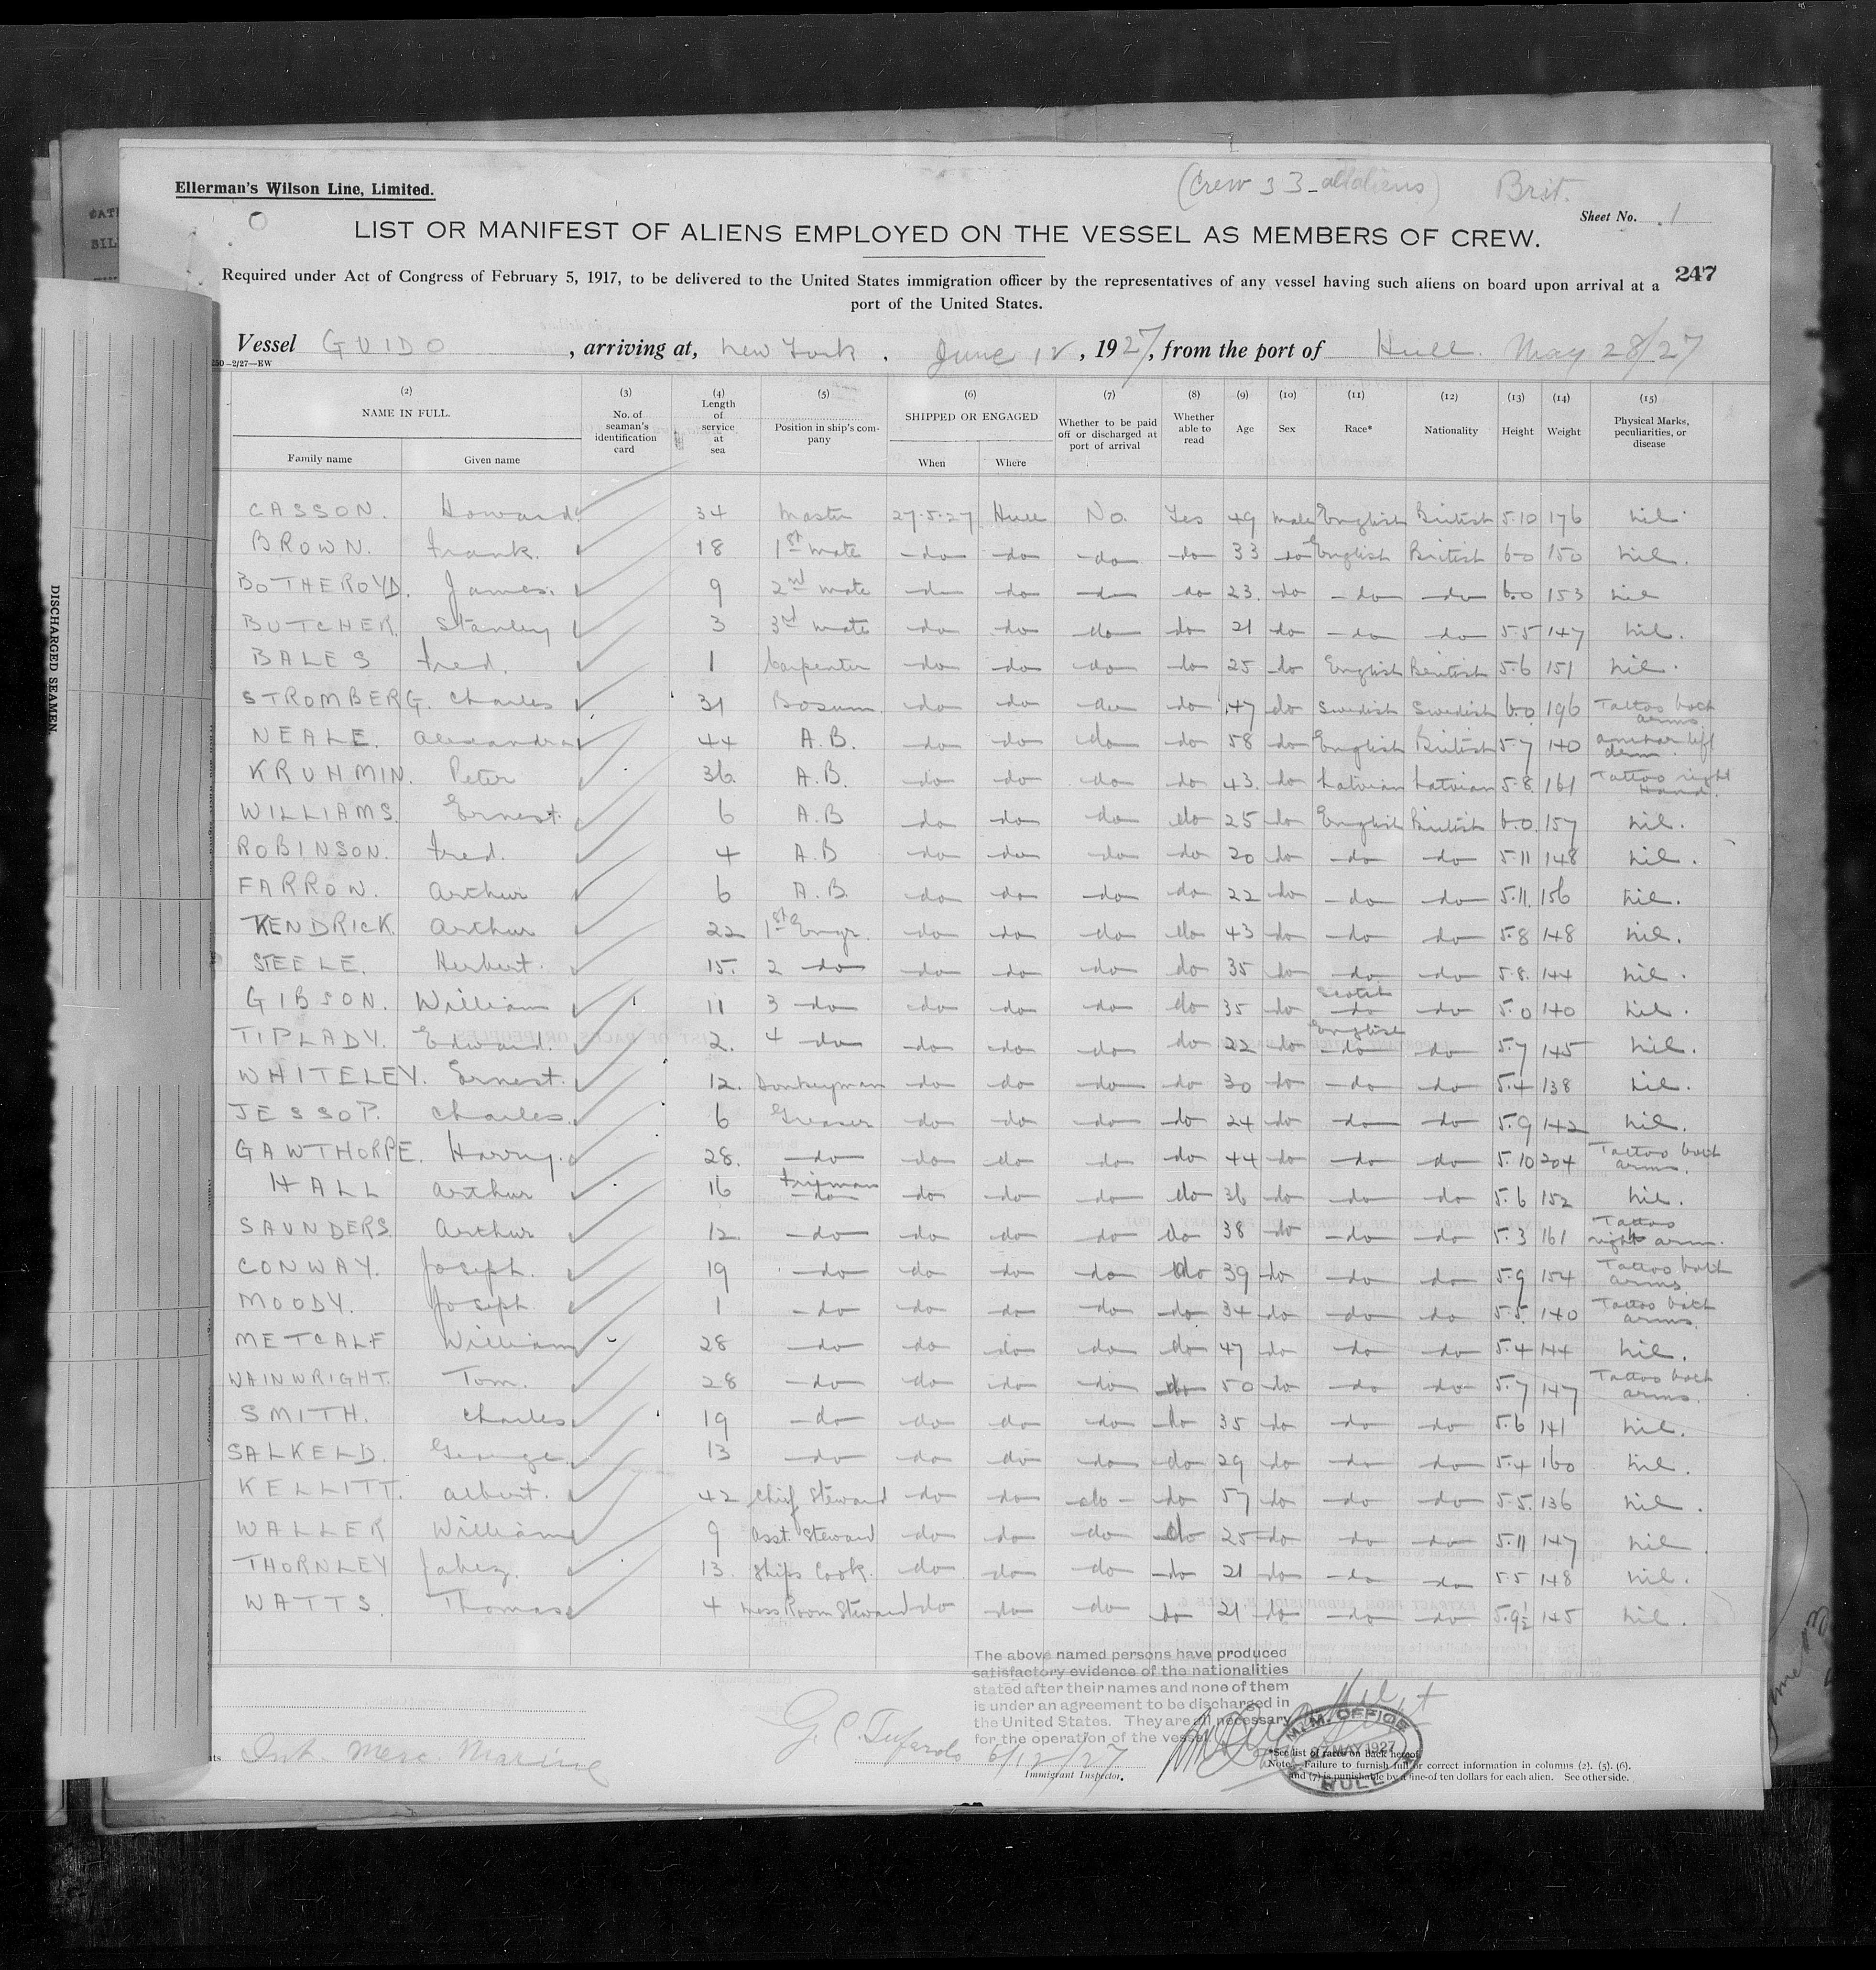 Ellerman's Wilson Line, Limited.
(Crew 33 - all aliens) Brit.
Sheet No. 1
LIST OR MANIFEST OF ALIENS EMPLOYED ON THE VESSEL AS MEMBERS OF CREW.
Required under Act of Congress of February 5, 1917, to be delivered to the United States immigration officer by the representatives of any vessel having such aliens on board upon arrival at a 247
port of the United States.
Vessel GUIDO, arriving at, New York, June 12, 1927, from the port of Hull. May 28/27
250-2/27-EW
(2) NAME IN FULL. Family name Given name (3) No. of seaman's identification card (4) Length of service at sea (5) Position in ship's company (6) SHIPPED OR ENGAGED When Where (7) Whether to be paid off or discharged at port of arrival (8) Whether able to read (9) Age (10) Sex (11) Race* (12) Nationality (13) Height (14) Weight (15) Physical Marks, peculiarities, or disease
CASSON. Howard. 34 Master 27.5.27 Hull No. Yes 49 Male English British 5.10 176 nil.
BROWN. Frank. 18 1st mate -do- -do- -do- -do- 33 do English British 6-0 150 nil.
BOTHEROYD. James. 9 2nd mate -do- -do- -do- do 23. do -do- -do- 6.0 153 nil
BUTCHER. Stanley 3 3rd mate do do do do 21 do -do- -do- 5.5 147 nil.
BALES Fred. 1 Carpenter do do do do 25 do English British 5.6 151 nil.
STROMBERG. Charles 31 Bosum. do do do do 47 do Swedish Swedish 6.0 196 Tattoo both arms.
NEALE. Alexandra 44 A.B. do do do do 58 do English British 5.7 140
KRUHMIN. Peter 36. A.B. do do do do 43. do Latvian Latvian 5.8. 161 Tattoo right Hand.
WILLIAMS. Ernest. 6 A.B do do do do 25 do English British 6.0. 157 nil.
ROBINSON. Fred. 4 A.B do do do do 20 do -do- do 5.11 148 nil.
FARRON. Arthur 6 A.B. do do do do 22 do -do- do 5.11. 156 nil.
KENDRICK. Arthur 22 1st Engr. do do do do 43 do -do- do 5.8 148 nil.
STEELE. Herbert. 15. 2 -do- do do do do 35 do -do- do 5.8. 144 nil.
GIBSON. William 11 3 -do- do do do do 35 do Scotch do do 5.0 140 nil.
TIPLADY. Edward. 2. 4 -do- do do do do 22 do English do do 5.7 145 nil.
WHITELEY. Ernest. 12. Donkeyman do do do do 30 do do do 5.4 138 nil.
JESSOP. Charles. 6 Greaser do do do do 24 do do do 5.9 142 nil.
GAWTHORPE. Harry. 28. -do- do do do do 44 do do do 5.10 204 Tattoo both arms.
HALL Arthur 16 Fireman do do do do do 36 do do do 5.6 152 nil.
SAUNDERS. Arthur 12. -do- do do do do 38 do do do 5.3 161 Tattoo right arm.
CONWAY. Joseph. 19 -do- do do do do 39 do do do 5.9 154 Tattoo both arms.
MOODY. Joseph. 1 -do- do do do do 34 do do do 5.5. 140 Tattoo both arms.
METCALF William 28 -do- do do do do 47 do do do 5.4 144 nil.
WAINWRIGHT. Tom. 28 -do- do do do do 50 do do do 5.7 147 Tattoo both arms.
SMITH. Charles 19 -do- do do do do 35 do do do 5.6 141 nil.
SALKELD. George. 13 -do- do do do do 29 do do do 5.4 160 nil.
KELLITT. Albert. 42 Chief Steward do do do do 57 do do do 5.5. 136 nil.
WALLER William 9 Asst. Steward do do do do 25 do do do 5.11 147 nil.
THORNLEY Jabez. 13. Ships Cook. do do do do 21 do do do 5.5 148 nil.
WATTS. Thomas 4 Mess Room Steward do do do do 21 do do do 5.9½ 145 nil.
DISCHARGED SEAMEN.
The above named persons have produced
satisfactory evidence of the nationalities
stated after their names and none of them
is under an agreement to be discharged in
the United States. They are all necessary
for the operation of the vessel.
Int. Merc. Marine
6/12/27
Immigrant Inspector.
M.M. OFFICE
27 MAY 1927
HULL
*See list of races on back hereof.
Note.—Failure to furnish full or correct information in columns (2). (5). (6).
and (7) is punishable by a fine of ten dollars for each alien. See other side.